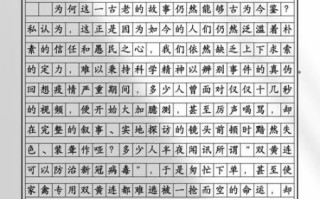 为何这一古老的故事仍然能够古为今鉴？
私认为，这正是因为如今的人们仍然泛滥着朴
素的信任和愚民之心，我们依然缺乏上下求索
的定力，难以秉持科学精神以辨别事件的真伪
回想疫情严重期间，多少人曾面对仅仅十几秒
的视频，便开始大加臆测，甚至厉声喝骂，却
在完整的叙事、实地探访的镜头前顿时黯然失
色、装聋作哑？多少人半夜闻讯所谓“双黄连
可以防治新冠病毒”，于是匆忙下单，甚至使
家禽专用双黄连都难逃被一抢而空的命运，却